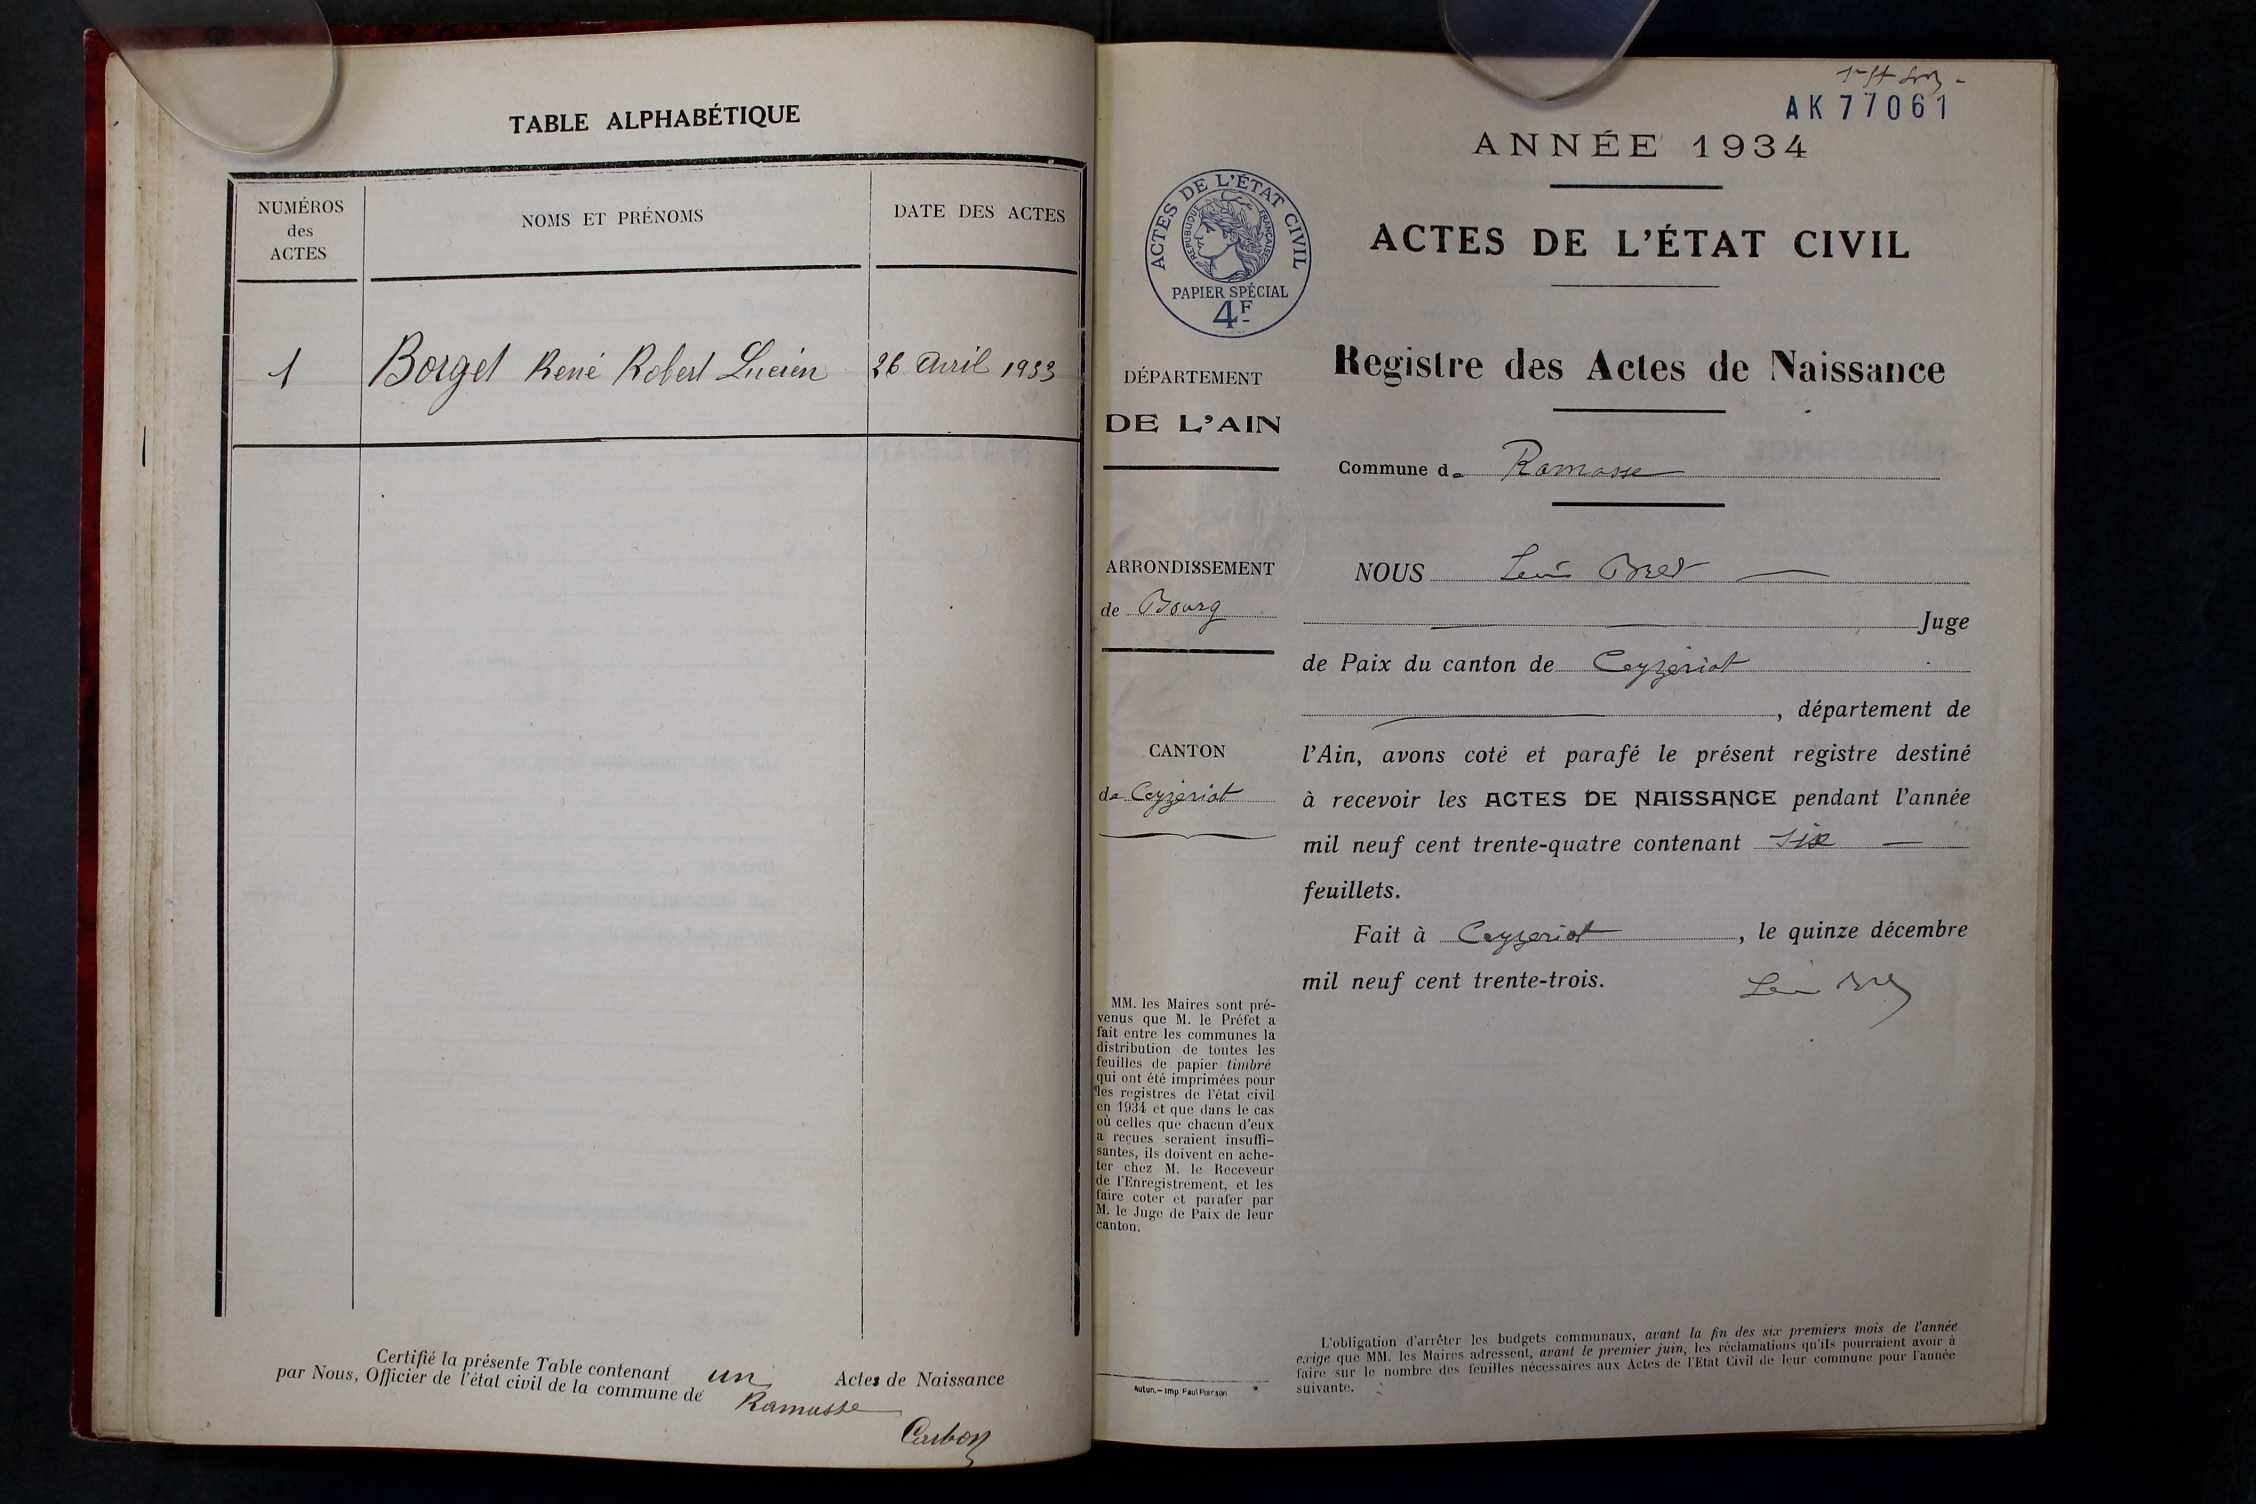 TABLE ALPHABÉTIQUE
NUMÉROS
des
ACTES
NOMS ET PRÉNOMS
DATE DES ACTES
1
Borget René Robert Lucien
26 Avril 1933
Certifié la présente Table contenant un Actes de Naissance
par Nous, Officier de l'état civil de la commune de Ramasse
Carbon
AK 77061
ANNÉE 1934
ACTES DE L'ÉTAT CIVIL
RÉPUBLIQUE FRANÇAISE
PAPIER SPÉCIAL
4F
ACTES DE L'ÉTAT CIVIL
Registre des Actes de Naissance
Commune de Ramasse
DÉPARTEMENT
DE L'AIN
ARRONDISSEMENT
de Bourg
CANTON
de Ceyzériat
MM. les Maires sont pré-
venus que M. le Préfet a
fait entre les communes la
distribution de toutes les
feuilles de papier timbré
qui ont été imprimées pour
les registres de l'état civil
en 1934 et que dans le cas
où celles que chacun d'eux
a reçues seraient insuffi-
santes, ils doivent en ache-
ter chez M. le Receveur
de l'Enregistrement, et les
faire coter et parafer par
M. le Juge de Paix de leur
canton.
Autun. - Imp. Paul Poirson
NOUS Bret
Juge
de Paix du canton de Ceyzériat
, département de
l'Ain, avons coté et parafé le présent registre destiné
à recevoir les ACTES DE NAISSANCE pendant l'année
mil neuf cent trente-quatre contenant six
feuillets.
Fait à Ceyzériat, le quinze décembre
mil neuf cent trente-trois.
L'obligation d'arrêter les budgets communaux, avant la fin des six premiers mois de l'année
exige que MM. les Maires adressent, avant le premier juin, les réclamations qu'ils pourraient avoir à
faire sur le nombre des feuilles nécessaires aux Actes de l'Etat Civil de leur commune pour l'année
suivante.